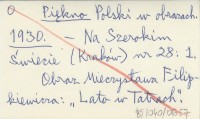 O Piękno Polski w obrazach.
1930. — Na Szerokim
Świecie (Kraków) nr 28: 1.
Obraz Mieczysława Filip-
kiewicza: „Lato w Tatrach".